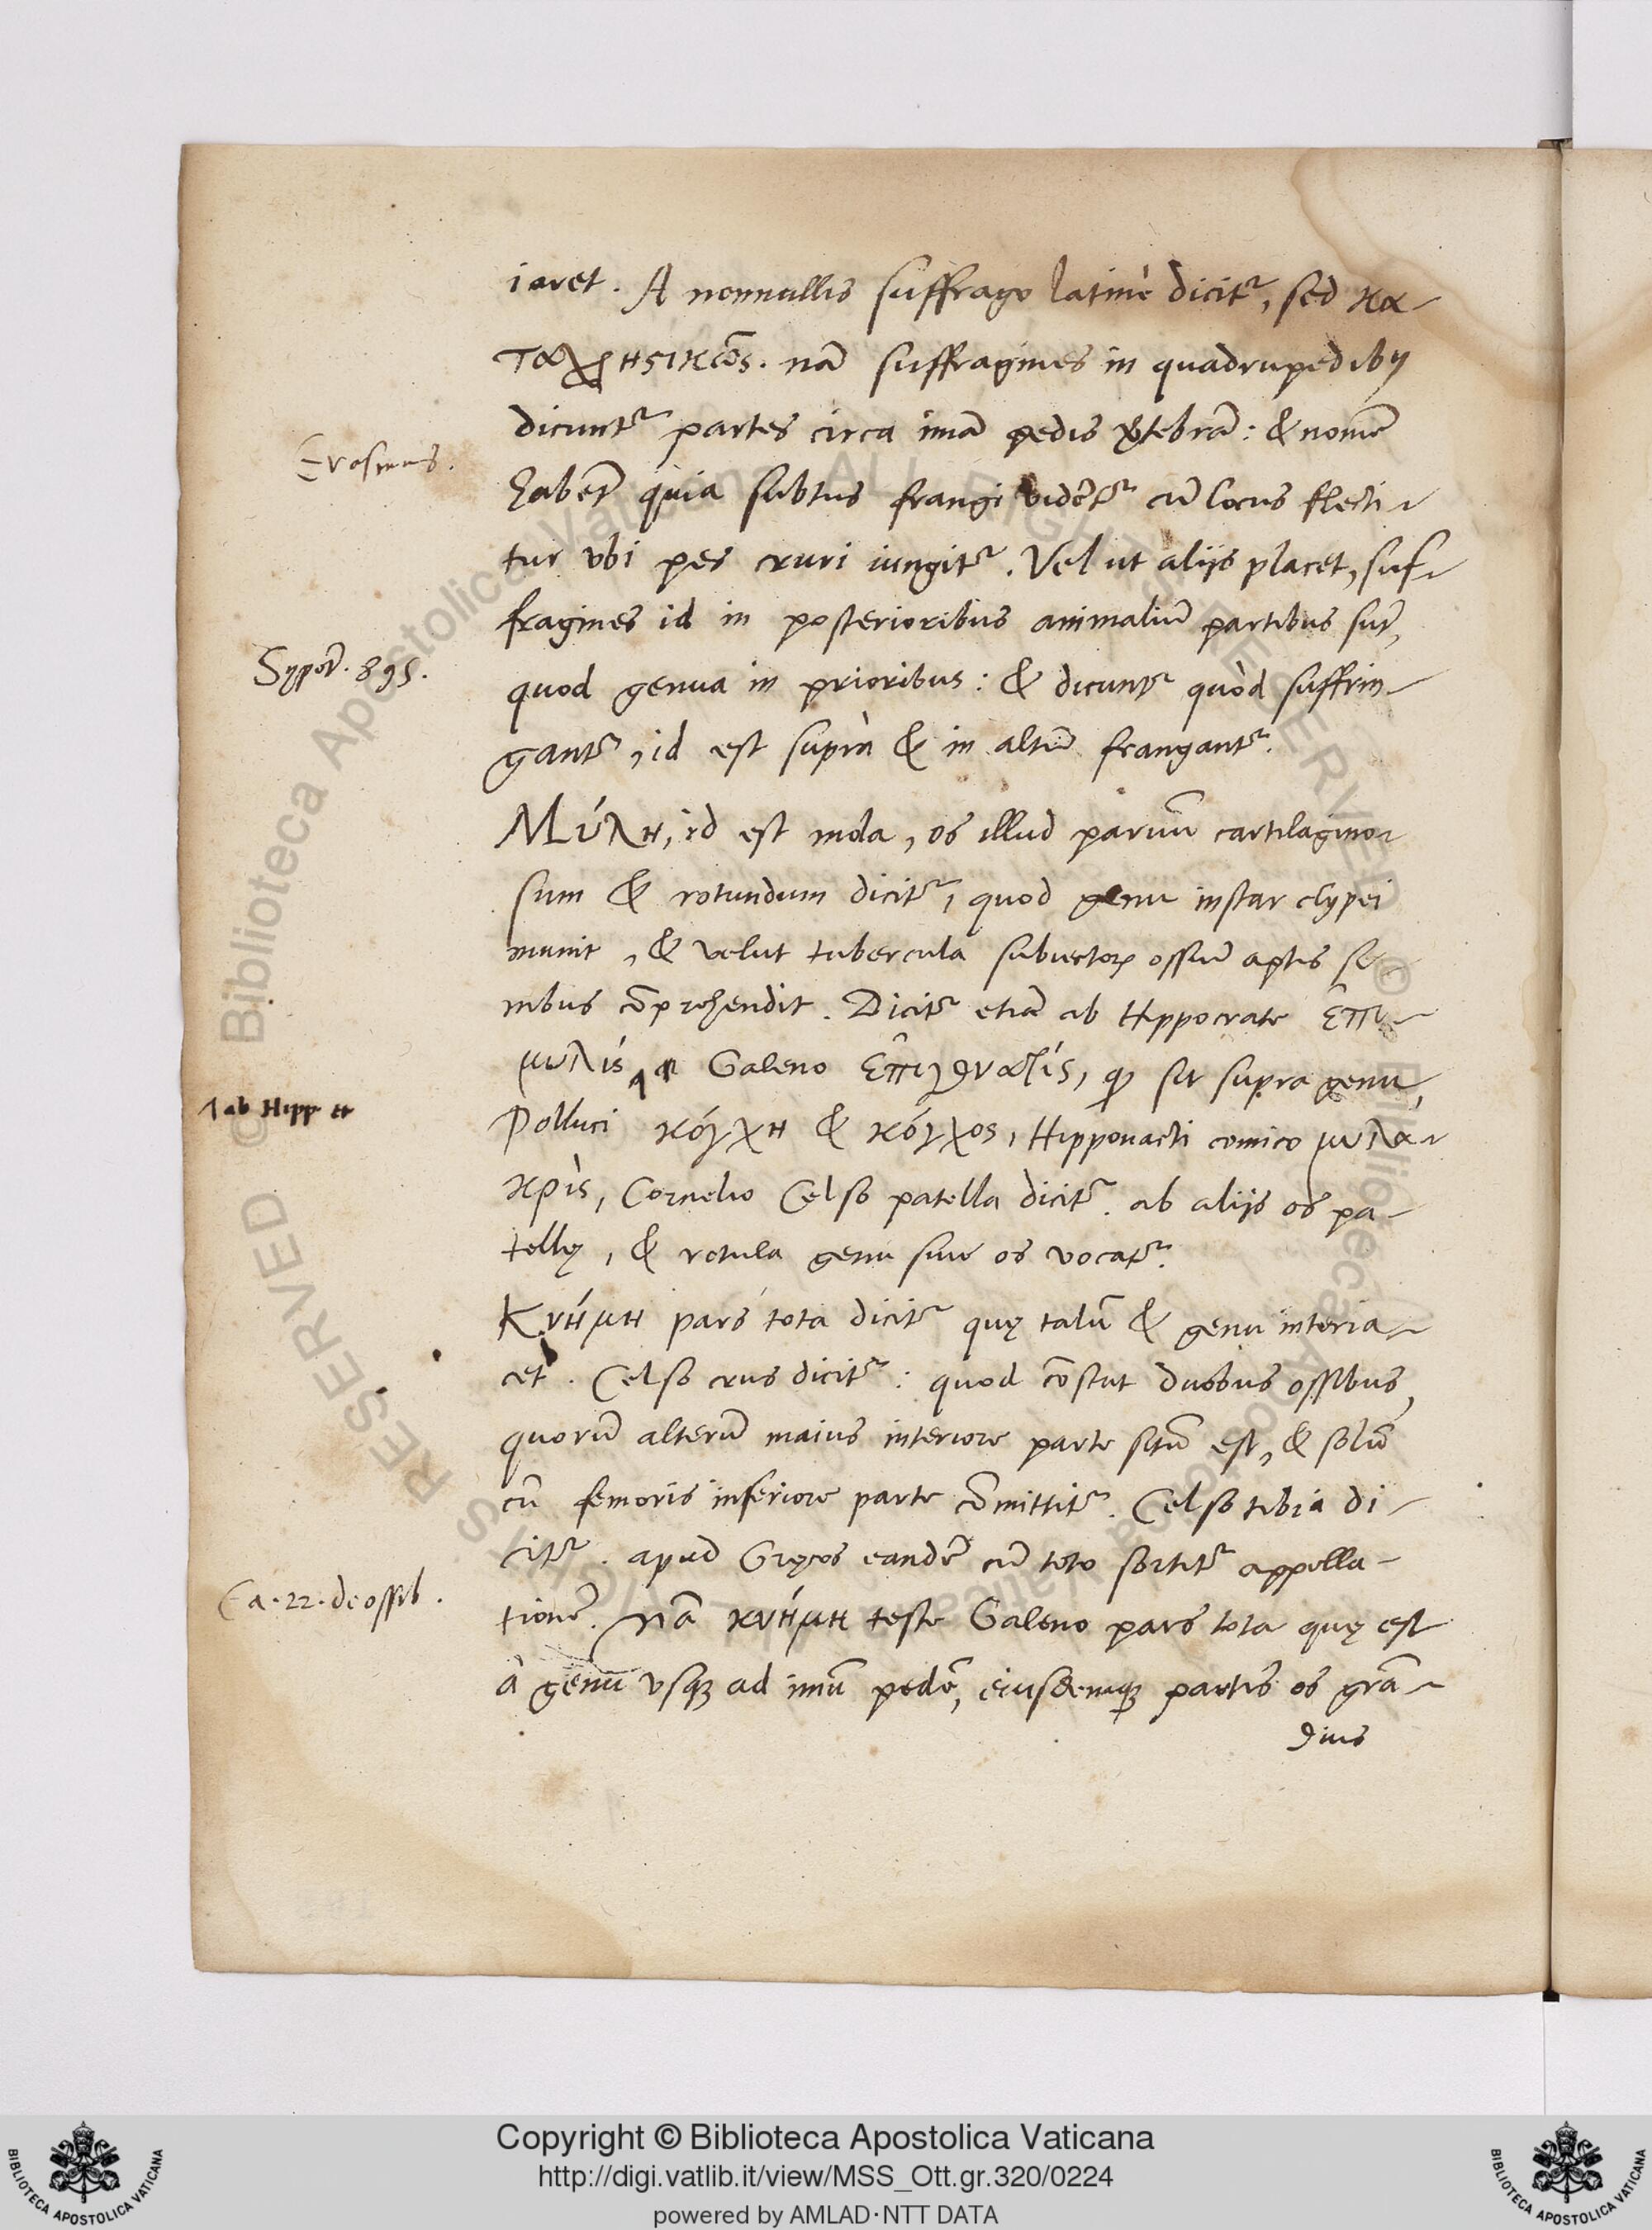 iacet. A nonnullis suffrago latinè dicitr̃, sed κα-
ταχρηστικῶς. nā suffragines in quadrupedibꝰ
dicuntr̃ partes circa imā pedis v̄tebrā: & nomē
Erasmus.
habēt quia subtus frangi vidētr̃ cū locus flecti-
tur vbi pes cruri iungitr̃. Vel ut alijs placet, suf-
fragines id in posterioribus animaliū partibus sūt,
Sypōt. 895.
quod genua in prioribus: & dicuntr̃ quòd suffrin-
gantr̃, id est suprà & in altū frangantr̃.
Μύλη, id est mola, os illud paruū cartilagino-
sum & rotundum dicitr̃, quod genu instar clypei
munit, & velut tubercula subiectoꝝ ossiū aptis si-
nibus cōprehendit. Dicitr̃ etiā ab Hippocrate ἐπι-
μυλίς, a Galeno ἐπιγουνατίς, ꝙ sit supra genu,
ab Hipp et
Polluci κόγχη & κόγχος, Hipponacti comico μυλα-
κρὶς, Cornelio Celso patella dicitr̃. ab alijs os pa-
tellę, & rotula genu siue os vocatr̃.
Κνήμη pars tota dicitr̃ quę talū & genu interia-
cet. Celso crus dicitr̃: quod cōstat duobus ossibus,
quorū alterū maius interiore parte sitū est, & solū
cū femoris inferiore parte cōmittitr̃. Celso tibia di-
citr̃. apud Gręcos eandē cū toto sortitr̃ appella-
Ca. 22. de ossib.
tionē. Nā κνήμη teste Galeno pars tota quę est
à genu vsqꝫ ad imū pedē, eiusdemqꝫ partis os grā-
dius
Copyright © Biblioteca Apostolica Vaticana
http://digi.vatlib.it/view/MSS_Ott.gr.320/0224
powered by AMLAD·NTT DATA
BIBLIOTECA APOSTOLICA VATICANA
BIBLIOTECA APOSTOLICA VATICANA